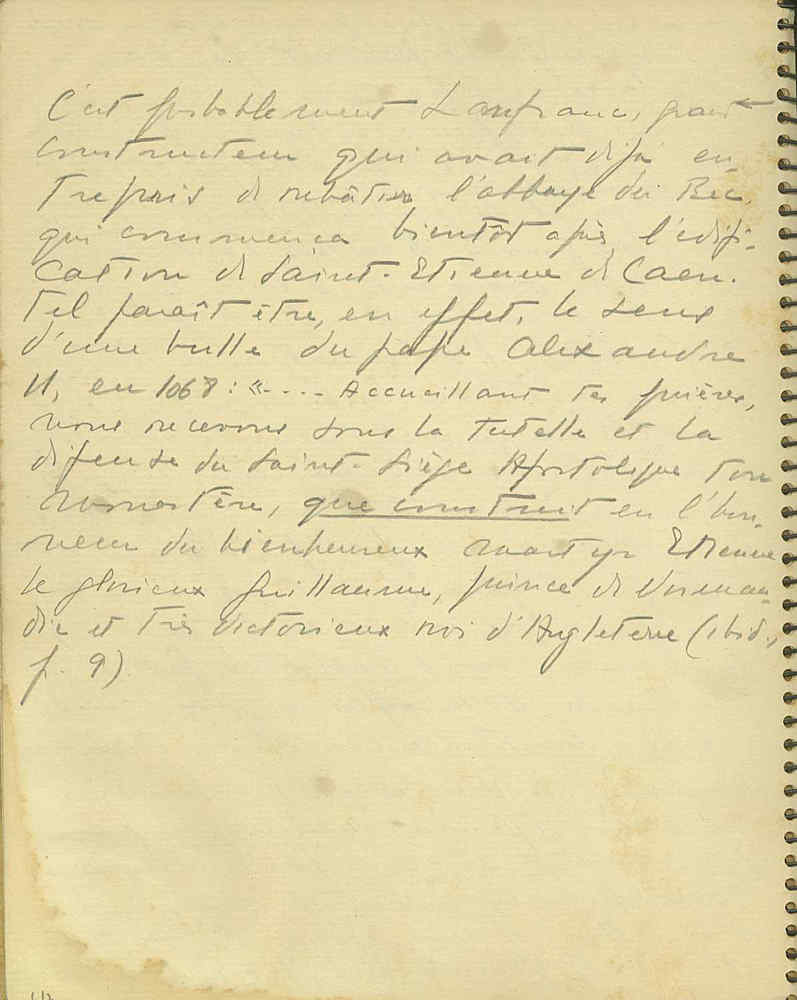 C'est probablement Lanfranc, grand
constructeur qui avait déjà en
trepris de rebâtir l'abbaye du Bec,
qui commença bientôt après l'édifi-
cation de Saint-Etienne de Caen.
Tel paraît être, en effet, le sens
d'une bulle du pape Alexandre
II, en 1068 : «.... Accueillant tes prières,
nous recevons sous la tutelle et la
défense du Saint-Siège Apostolique ton
monastère, que construit en l'hon-
neur du bienheureux martyr Etienne
le glorieux Guillaume, prince de Norman-
die et très victorieux roi d'Angleterre (ibid.,
p. 9)